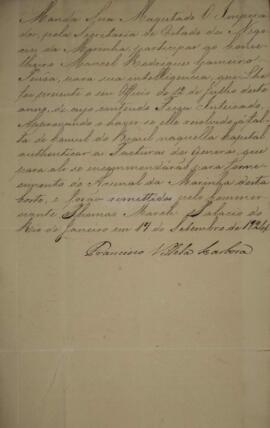 Manda Sua Magestade O Impera-
dor, pela Secretaria de Estado dos Nego-
cios da Marinha, participar ao Conse-
lheiro Manoel Rodrigues Gameiro
Pessôa, para sua intelligencia, que lhe
foi presente o seu Officio de de Julho deste
anno, de cujo contéudo ficou Inteirado,
Approvando o haver se elle resolvido, á fal-
ta de Consul do Brazil naquella Capital
authenticar as Facturas dos Generos, que
para ali se encommendárão para forne-
cimento do Arsenal da Marinha desta
Corte, e forão remettidos pelo Commer-
ciante Thomas March. Palacio do
Rio de Janeiro em 14 de Setembro de 1824
Francisco Villela Barboza